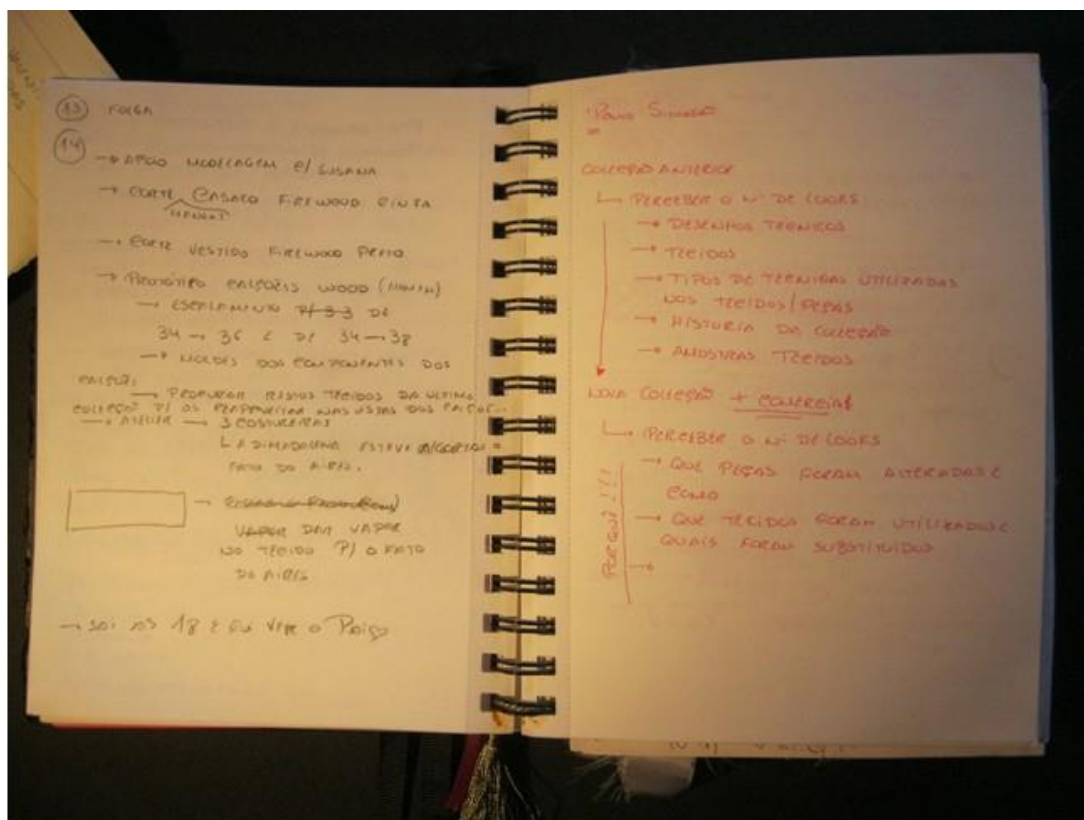 13 FOLGA
14
→ APOIO MODELAGEM C/ SUSANA
→ CORTE CASACO FIREWOOD CINTA
MANGAS
→ CORTE VESTIDO FIREWOOD PRETO.
→ PROTÓTIPO CALÇÕES WOOD
→ ESCALAMENTO P/ 33 DE
34 → 36 E D/ 34 → 38
→ MOLDES DOS COMPONENTES DOS
CALÇÕES
→ PROCURAR RESTOS TECIDOS DA ÚLTIMA
COLEÇÃO P/ OS REAPROVEITAR NAS VISTAS DOS
→ ATELIER → 3 COSTUREIRAS
ESTEVE
FATO DO AIRES.
VAPOR DAR VAPOR
NO TECIDO P/ O FATO
DO AIRES
→ SAI ÀS 18 E FUI VER O
COLEÇÃO ANTERIOR
PERCEBER O Nº DE LOOKS
→ DESENHOS TÉCNICOS
→ TECIDOS
→ TIPOS DE TÉCNICAS UTILIZADAS
NOS TECIDOS/PEÇAS
→ HISTÓRIA DA COLEÇÃO
→ AMOSTRAS TECIDOS
NOVA COLEÇÃO + COMERCIAL
PERCEBER O Nº DE LOOKS
→ QUE PEÇAS FORAM ALTERADAS E
COMO
→ QUE TECIDOS FORAM UTILIZADOS E
QUAIS FORAM SUBSTITUIDOS
PORQUÊ !!!